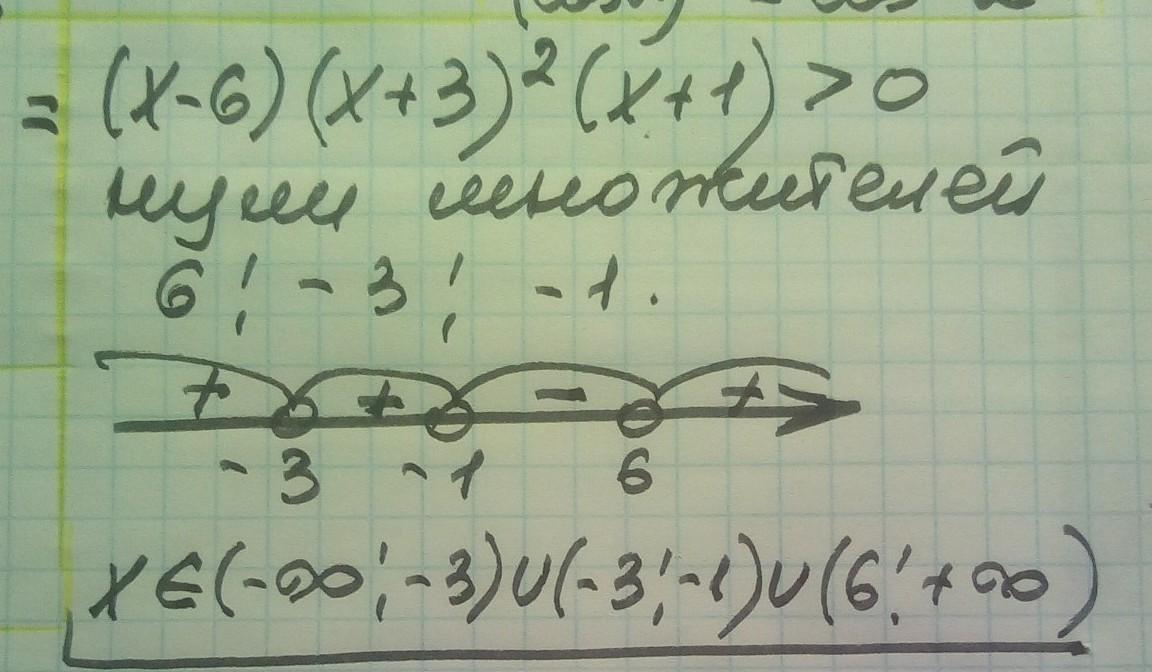 = (x-6)(x+3)²(x+1) > 0
нули множителей
6; -3; -1.
+ + - +
-3 -1 6
x∈(-∞;-3)∪(-3;-1)∪(6;+∞)